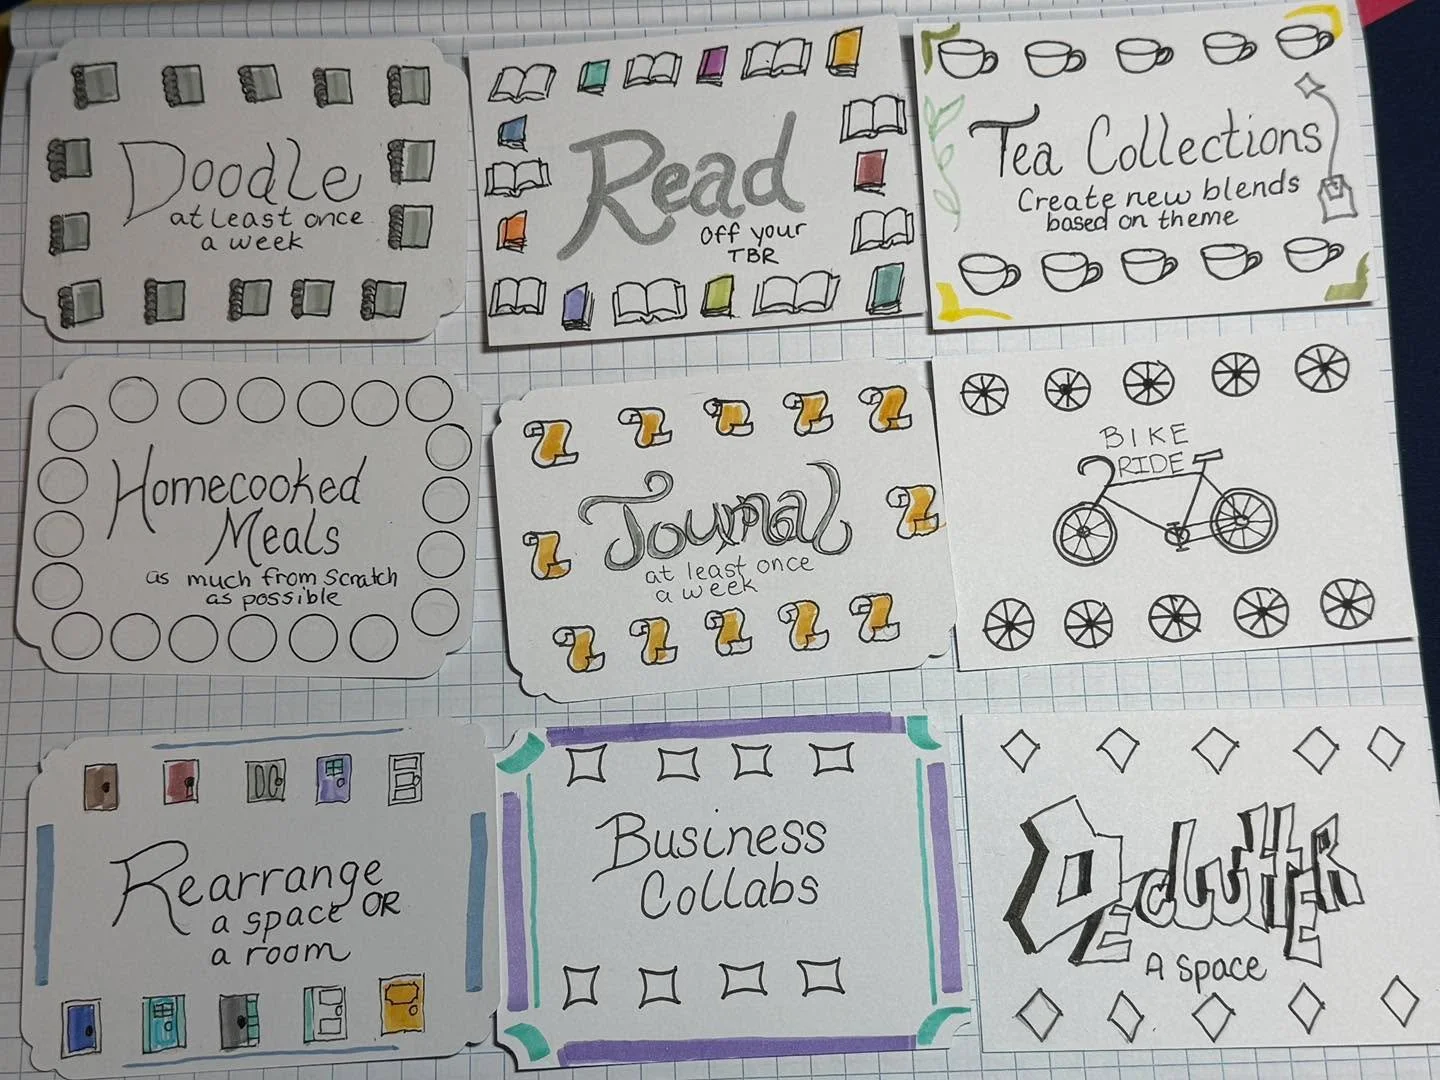 Doodle
at least once
a week
Read
off your
TBR
Tea Collections
Create new blends
based on theme
Homecooked
Meals
as much from scratch
as possible
Journal
at least once
a week
BIKE
RIDE
Rearrange
a space OR
a room
Business
Collabs
DEcluttER
A space